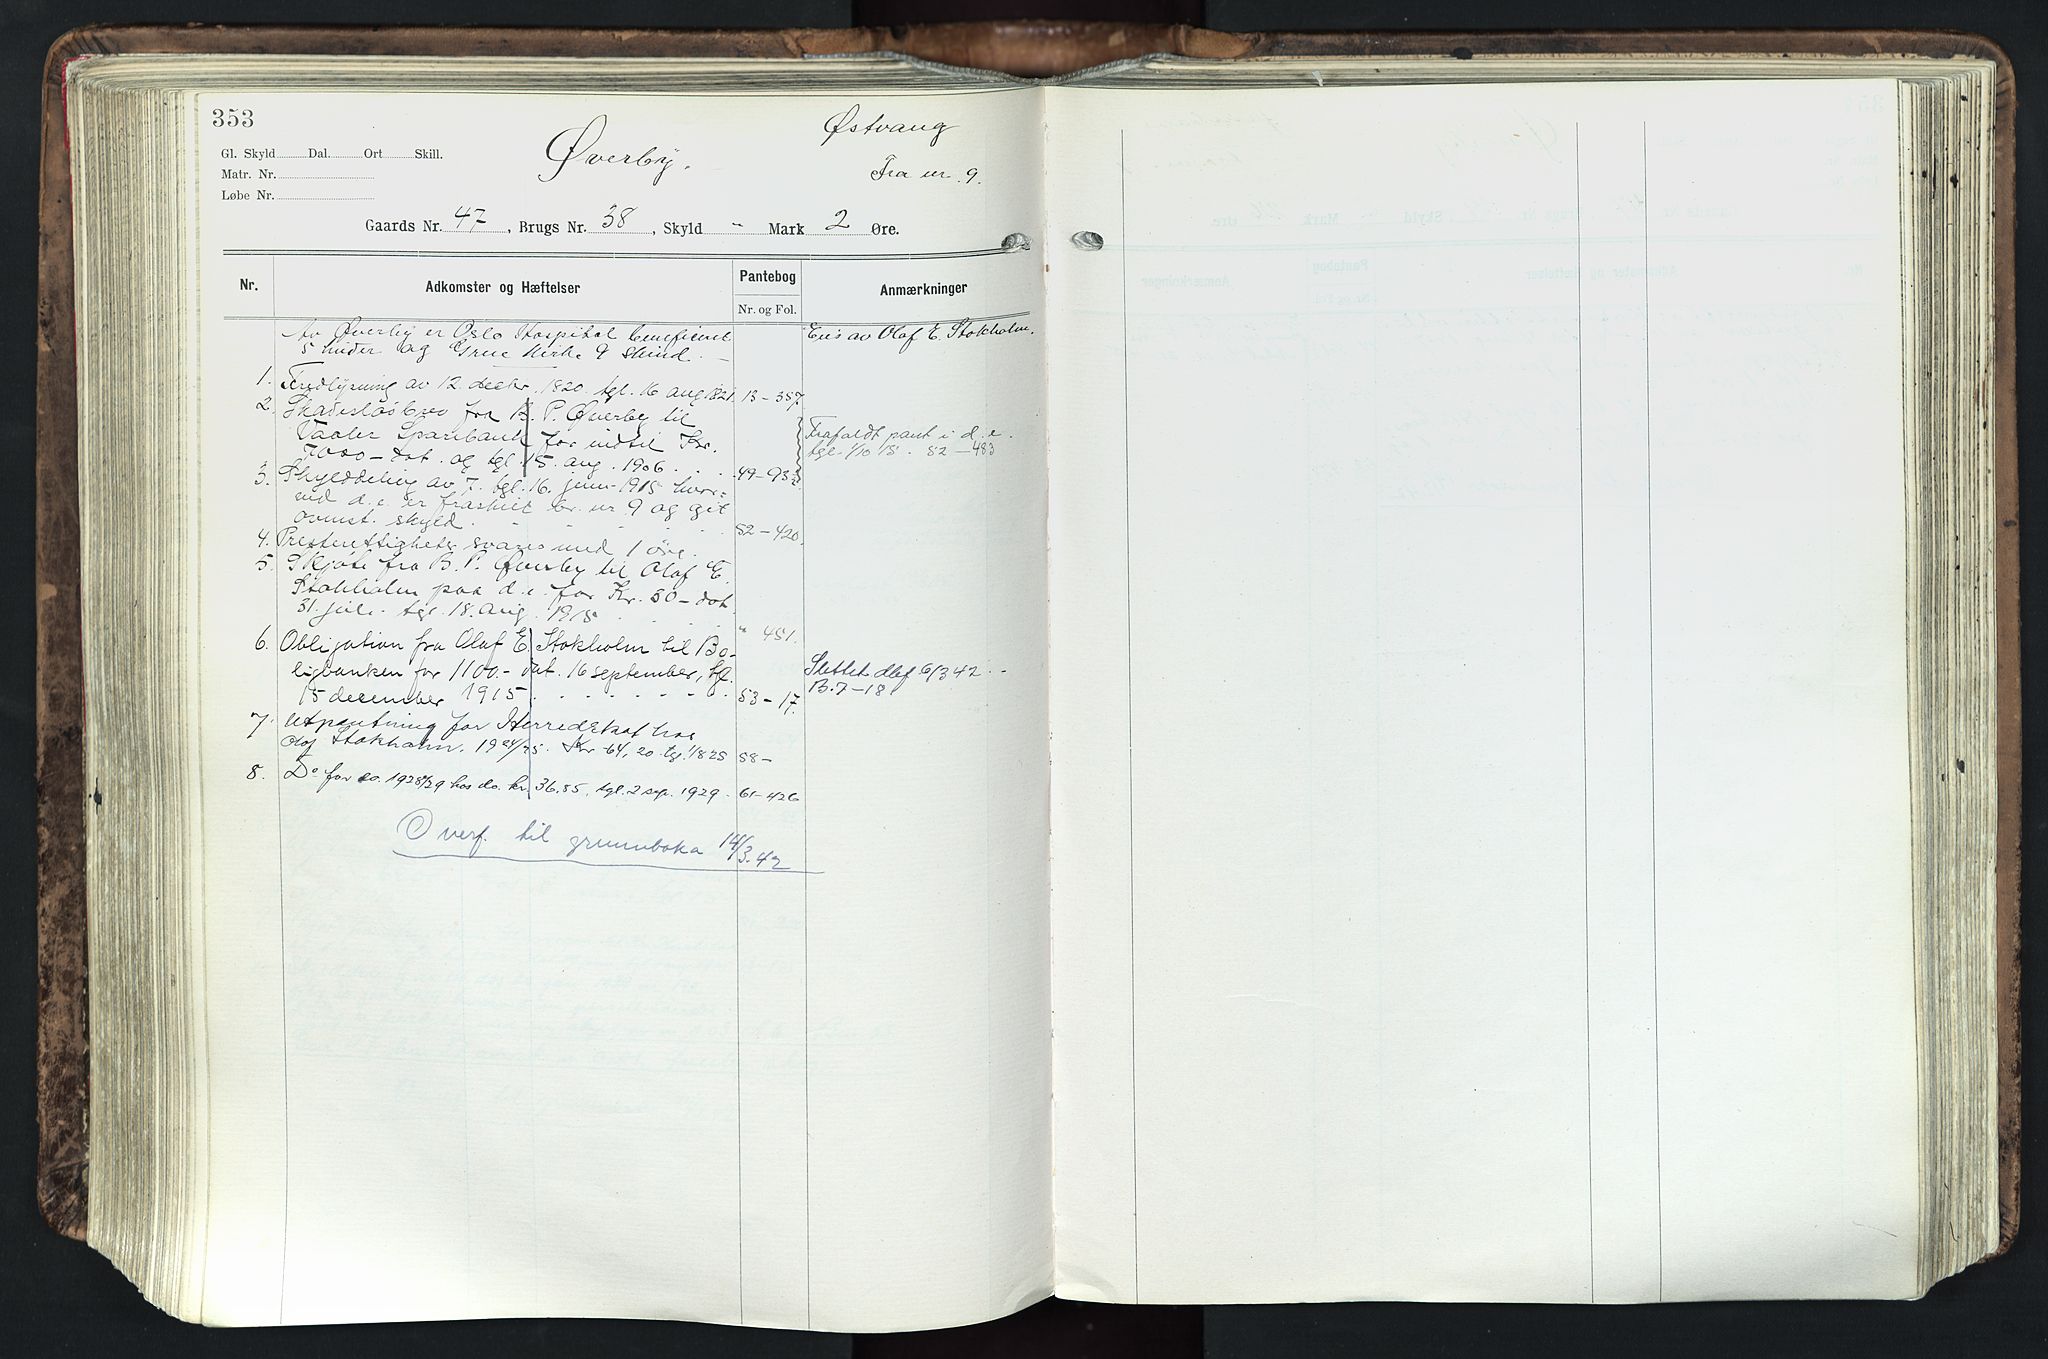 353
Østvang
Gl. Skyld Dal. Ort Skill.
Øverby.
Matr. Nr.
Fra nr. 9.
Løbe Nr.
Gaards Nr. 47, Brugs Nr. 38, Skyld " Mark 2 Øre.
Nr. Adkomster og Hæftelser Pantebog Nr. og Fol. Anmærkninger
Av Øverby er Oslo Hospital beneficeret Eies av Olaf E. Stokholm.
5 huder og Grue Kirke 9 skind.
1. Fredlysning av 12 decbr. 1820 tgl. 16 aug 1821 13-357
2. Skadesløsbrev fra B. P. Øverby til
Vaaler Sparebank for indtil Kr. Frafaldt pant i d. e.
7000- dat. og tgl. 15. aug. 1906 . . 49-93½ tgl. 1/10 15. 52-483
3. Skylddeling av 7. tgl. 16. juni 1915 hvor-
ved d. e. er fraskilt br. nr 9 og git
ovnst. skyld. 52-420.
4. Presterettigheter svares med 1 øre.
5. Skjøte fra B. P. Øverby til Olaf E.
Stokholm paa d. e. for Kr. 50- dat.
31. juli. tgl. 18. aug. 1915 " 451.
6. Obligation fra Olaf E. Stokholm til Bo-
ligbanken for 1100.- dat. 16 september, tgl. Slettet 6/3 42
15 december 1915. 53-17. B. 7-18
7. Utpantning for Herredskat hos
Olaf Stokholm. 1924/25. Kr. 64,20 tgl. 1/8 25 58-
8. Do for do. 1928/29 hos do. kr. 36.85, tgl. 2 sep. 1929. 61-426
Overf. til grunnboka 14/3.42